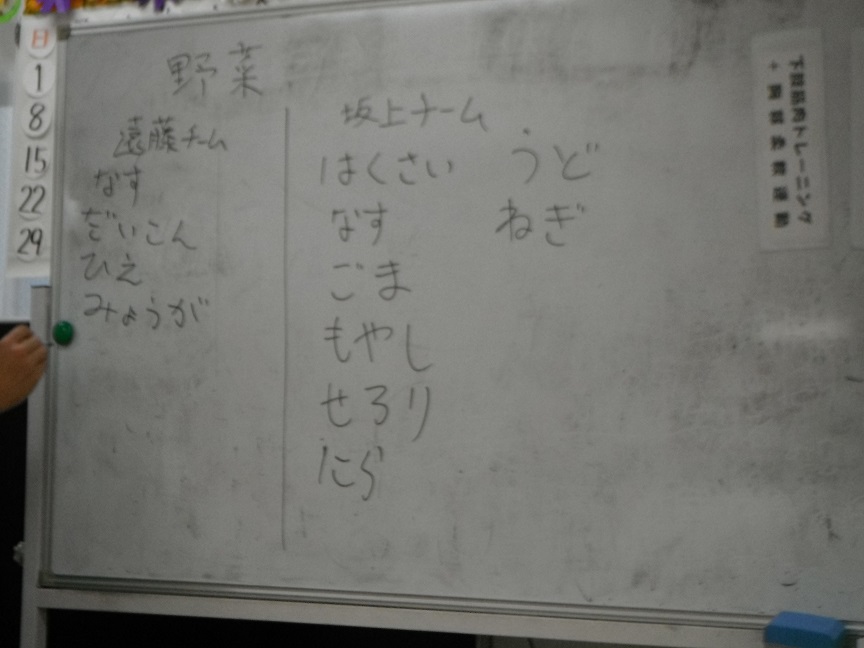 野菜
遠藤チーム
なす
だいこん
ひえ
みょうが
坂上チーム
はくさい
なす
ごま
もやし
せろり
にら
うど
ねぎ
日
1
8
15
22
29
下肢筋肉トレーニング